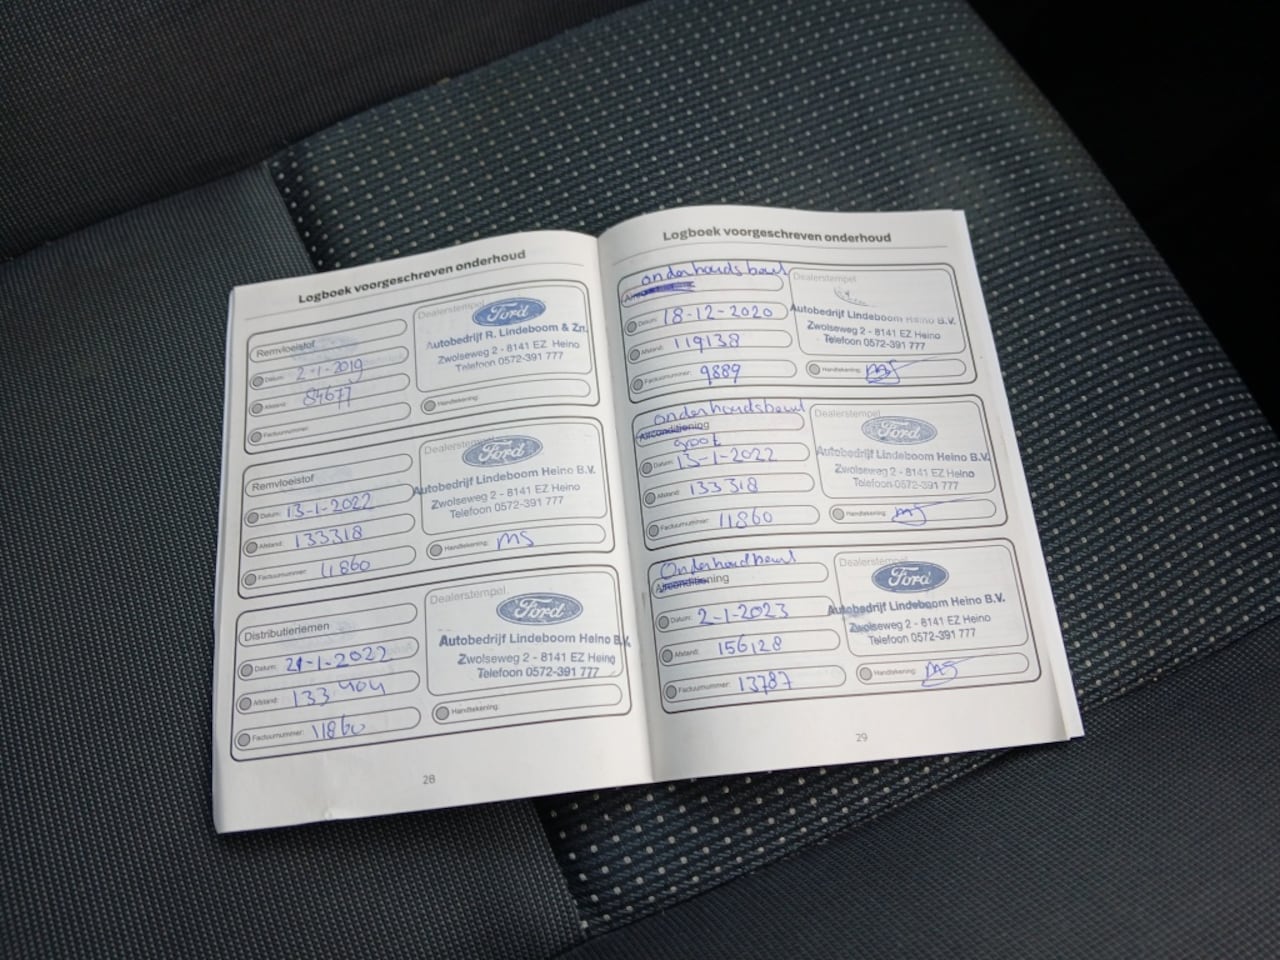 Logboek voorgeschreven onderhoud
Remvloeistof
Datum: 2-1-2019
Afstand: 84677
Factuurnummer:
Dealerstempel
Ford
Autobedrijf R. Lindeboom & Zn.
Zwolseweg 2 - 8141 EZ Heino
Telefoon 0572-391 777
Handtekening:
Remvloeistof
Datum: 13-1-2022
Afstand: 133318
Factuurnummer: 11860
Dealerstempel
Ford
Autobedrijf Lindeboom Heino B.V.
Zwolseweg 2 - 8141 EZ Heino
Telefoon 0572-391 777
Handtekening: MS
Distributieriemen
Datum: 21-1-2022
Afstand: 133404
Factuurnummer: 11860
Dealerstempel
Ford
Autobedrijf Lindeboom Heino B.V.
Zwolseweg 2 - 8141 EZ Heino
Telefoon 0572-391 777
Handtekening:
28
Logboek voorgeschreven onderhoud
onderhoudsbeurt
Datum: 18-12-2020
Afstand: 119138
Factuurnummer: 9889
Dealerstempel
Autobedrijf Lindeboom Heino B.V.
Zwolseweg 2 - 8141 EZ Heino
Telefoon 0572-391 777
Handtekening: MS
onderhoudsbeurt
Airconditioning
groot
Datum: 13-1-2022
Afstand: 133318
Factuurnummer: 11860
Dealerstempel
Ford
Autobedrijf Lindeboom Heino B.V.
Zwolseweg 2 - 8141 EZ Heino
Telefoon 0572-391 777
Handtekening: MS
Onderhoudbeurt
Airconditioning
Datum: 2-1-2023
Afstand: 156128
Factuurnummer: 13787
Dealerstempel
Ford
Autobedrijf Lindeboom Heino B.V.
Zwolseweg 2 - 8141 EZ Heino
Telefoon 0572-391 777
Handtekening: MS
29